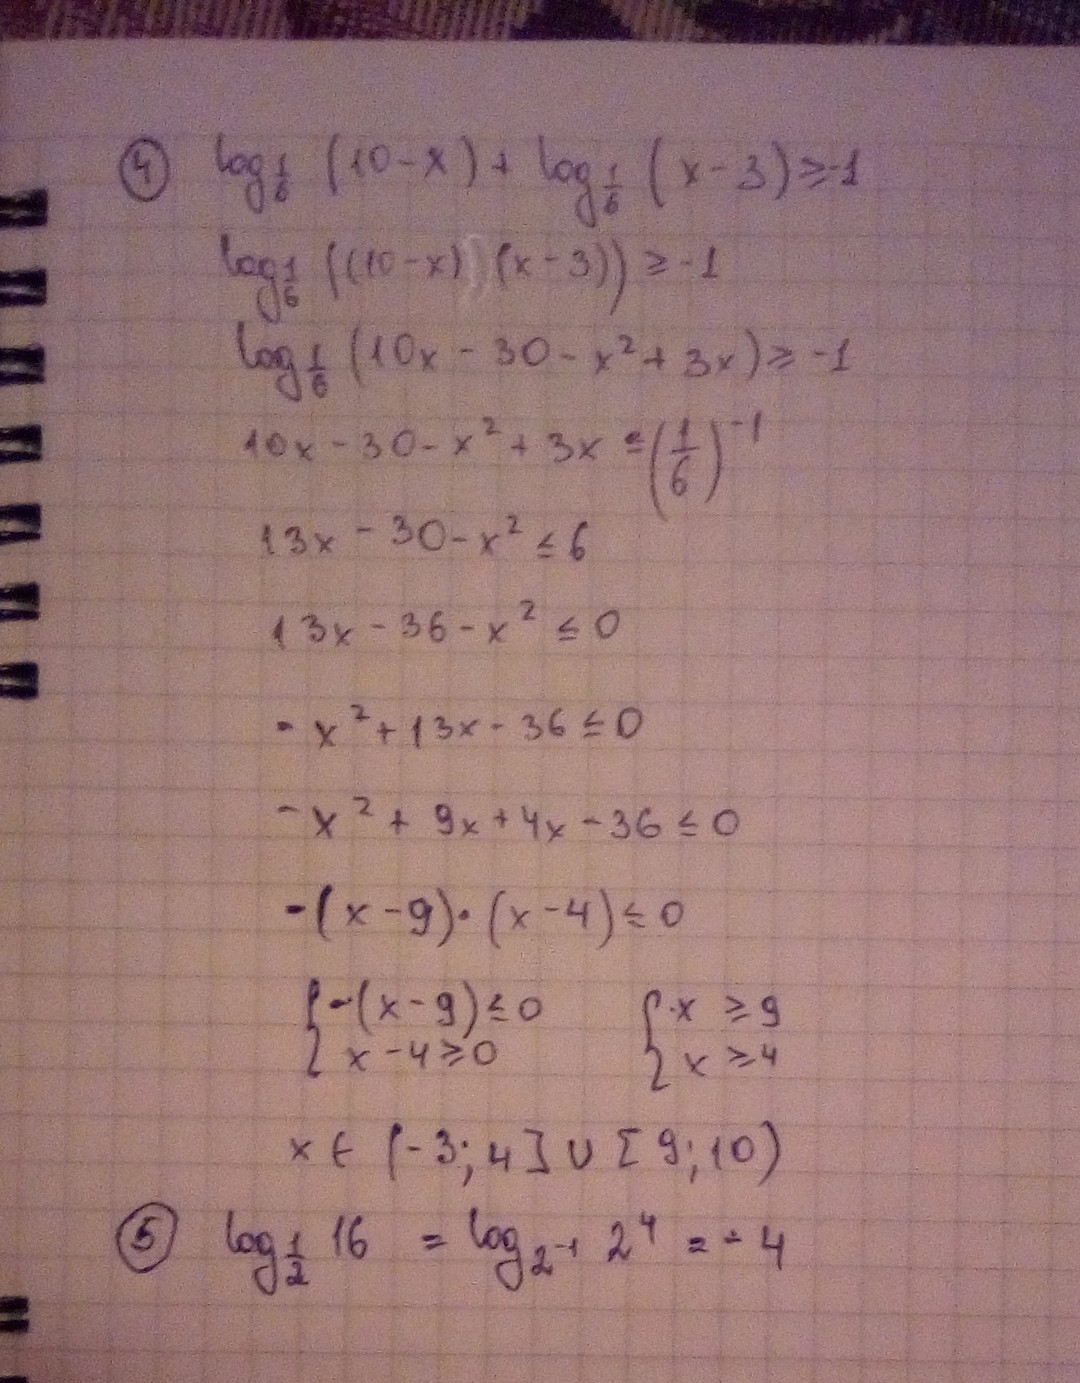 ④ log_{1/6} (10-x) + log_{1/6} (x-3) ≥ -1
log_{1/6} ((10-x) (x-3)) ≥ -1
log_{1/6} (10x - 30 - x² + 3x) ≥ -1
10x - 30 - x² + 3x ≤ (1/6)^{-1}
13x - 30 - x² ≤ 6
13x - 36 - x² ≤ 0
- x² + 13x - 36 ≤ 0
- x² + 9x + 4x - 36 ≤ 0
- (x-9) · (x-4) ≤ 0
{ -(x-9) ≤ 0 { x ≥ 9
x-4 ≥ 0 x ≥ 4
x ∈ (-3; 4] ∪ [9; 10)
⑤ log_{1/2} 16 = log_{2^{-1}} 2⁴ = -4